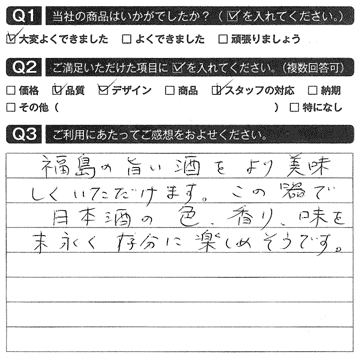 Q1 当社の商品はいかがでしたか?(☑を入れてください。)
☑大変よくできました □よくできました □頑張りましょう
Q2 ご満足いただけた項目に☑を入れてください。(複数回答可)
□価格 ☑品質 ☑デザイン □商品 ☑スタッフの対応 □納期
□その他( ) □特になし
Q3 ご利用にあたってご感想をおよせください。
福島の旨い酒をより美味
しくいただけます。この器で
日本酒の色、香り、味を
末永く存分に楽しめそうです。